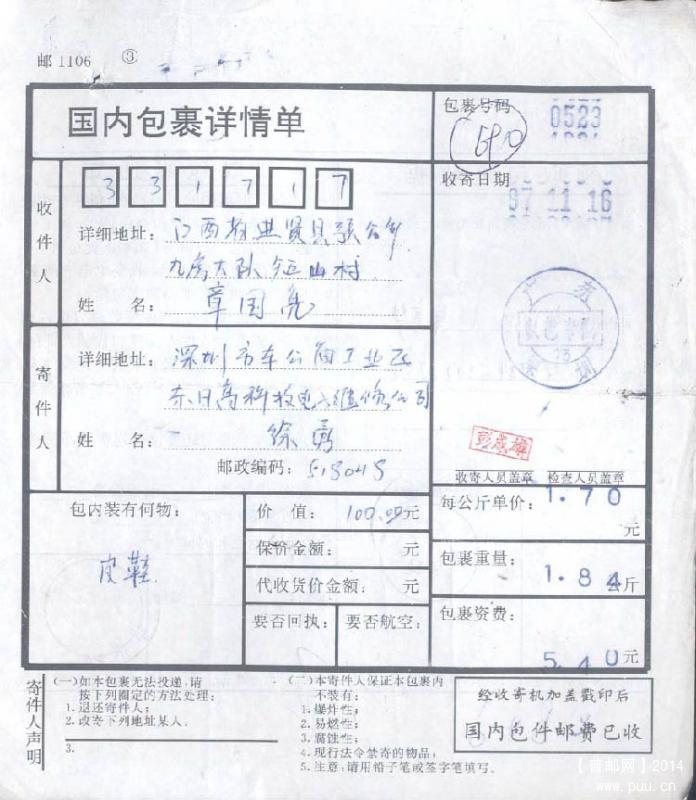 邮1106 ③
国内包裹详情单
包裹号码 0523
收寄日期 97 11 16
收件人
331717
详细地址：
九房大队征山村
姓 名：章国亮
寄件人
详细地址：深圳市车公庙工业区
东日高科技 公司
姓 名：徐勇
邮政编码：518048
广东
深圳
收寄人员盖章 检查人员盖章
包内装有何物：
皮鞋
价 值：100.00元
保价金额： 元
代收货价金额： 元
要否回执： 要否航空：
每公斤单价：1.70元
包裹重量：1.84公斤
包裹资费：5.40元
寄件人声明
(一)如本包裹无法投递，请
按下列圈定的方法处理：
1.退还寄件人；
2.改寄下列地址某人。
3.
(二)本寄件人保证本包裹内
不装有：
1.爆炸性；
2.易燃性；
3.腐蚀性；
4.现行法令禁寄的物品；
5.注意：请用铅子笔或签字笔填写。
经收寄机加盖戳印后
国内包件邮费已收
【普邮网】2014
www.puu.cn